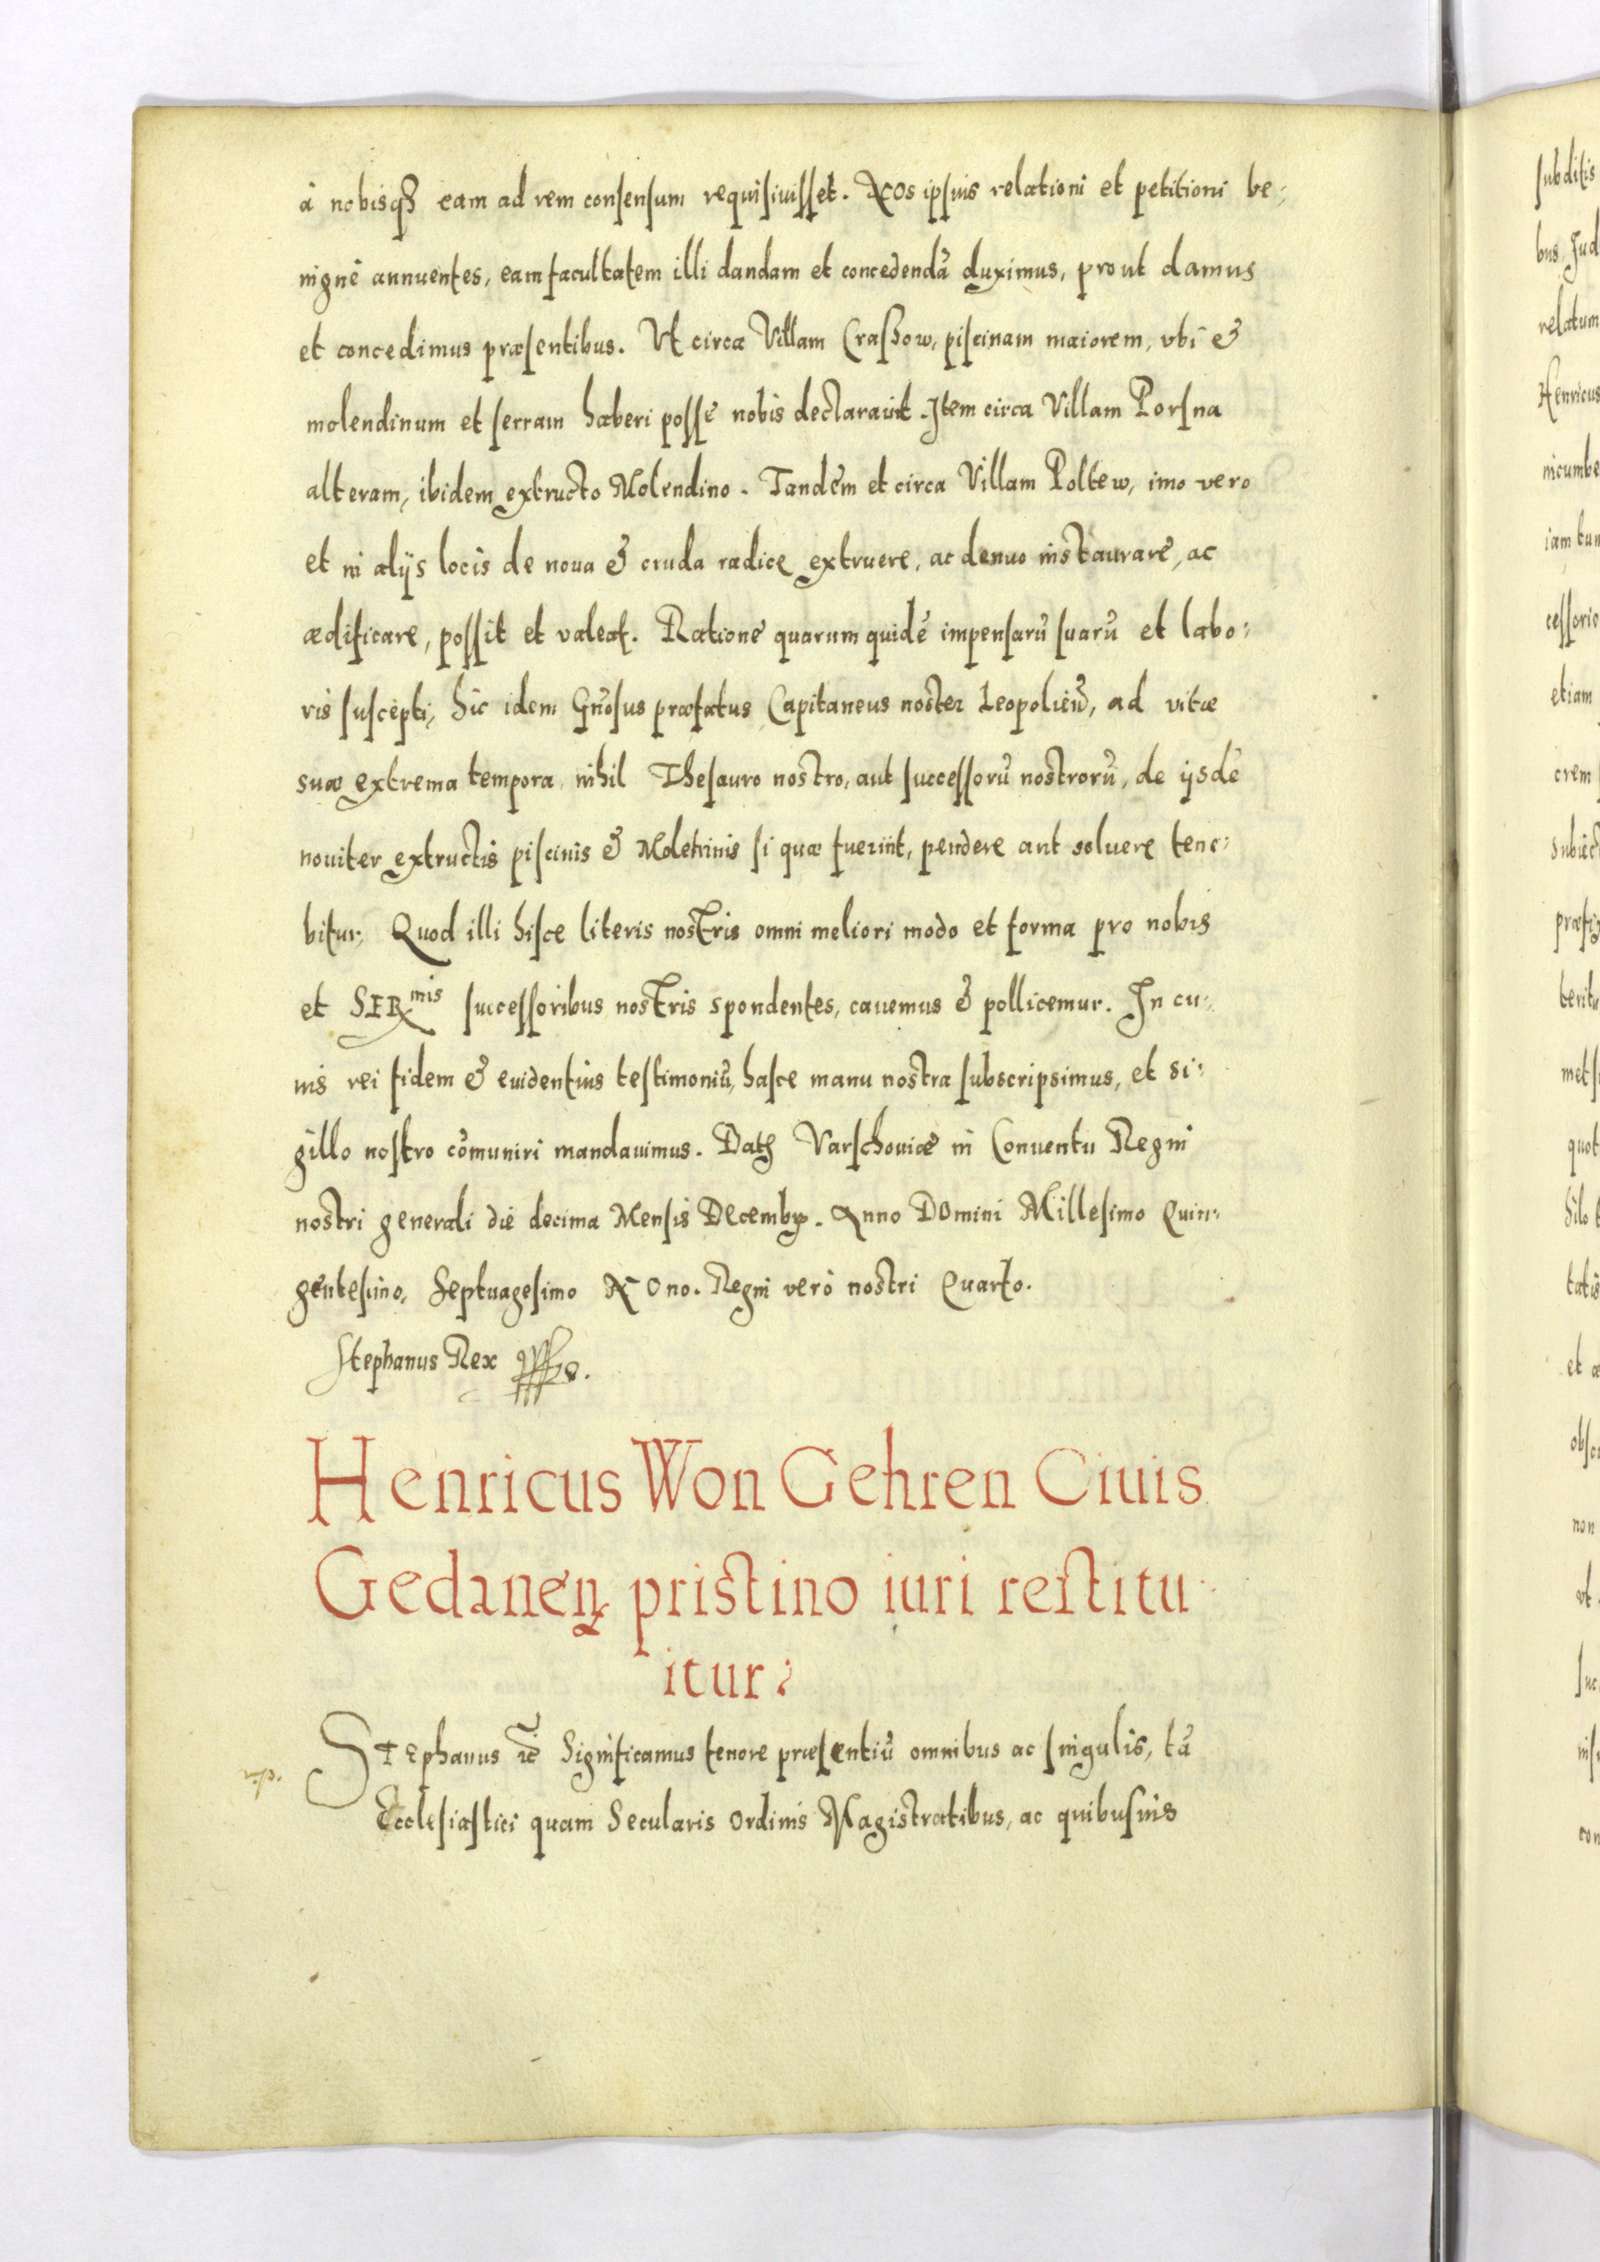 à nobisq₃ eam ad rem consensum requisiuisset. NOs ipsius relationi et petitioni be-
nignè annuentes, eam facultatem illi dandam et concedendā duximus, prout damus
et concedimus præsentibus. Vt circa Villam Crassow, piscinam maiorem, vbi &
molendinum et serram haberi posse nobis declarauit. Item circa Villam Porsna
alteram, ibidem extructo Molendino. Tandem et circa Villam Poltew, imo vero
et in alijs locis de noua & cruda radice extruere, ac denuo instaurare, ac
ædificare, possit et valeat. Ratione quarum quidē impensarū suarū et labo-
ris suscepti, hic idem Gnōsus præfatus Capitaneus noster Leopolień, ad vitæ
suæ extrema tempora nihil Thesauro nostro, aut successorū nostrorū, de ijsdē
nouiter extructis piscinis & Moletrinis si quæ fuerint, pendere aut soluere tene-
bitur. Quod illi hisce literis nostris omni meliori modo et forma pro nobis
et SERmis successoribus nostris spondentes, cauemus & pollicemur. In cu-
ius rei fidem & euidentius testimoniū, hasce manu nostra subscripsimus, et si-
gillo nostro cōmuniri mandauimus. Datꝫ Varschouiæ in Conuentu Regni
nostri generali die decima Mensis Decembr. Anno DOmini Millesimo Quin-
gentesimo, Septuagesimo NOno. Regni verò nostri Quarto.
Stephanus Rex
Henricus Won Gehren Ciuis
Gedanen pristino iuri restitu
itur:
STEphanus &c̄ Significamus tenore præsentiū omnibus ac singulis, tā
Ecclesiastici quam Secularis Ordinis Magistratibus, ac quibusuis
subditis
relatum
Henricus